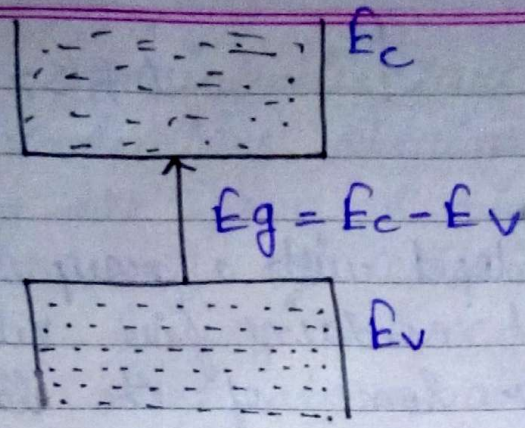 Ec
Eg = Ec - Ev
Ev